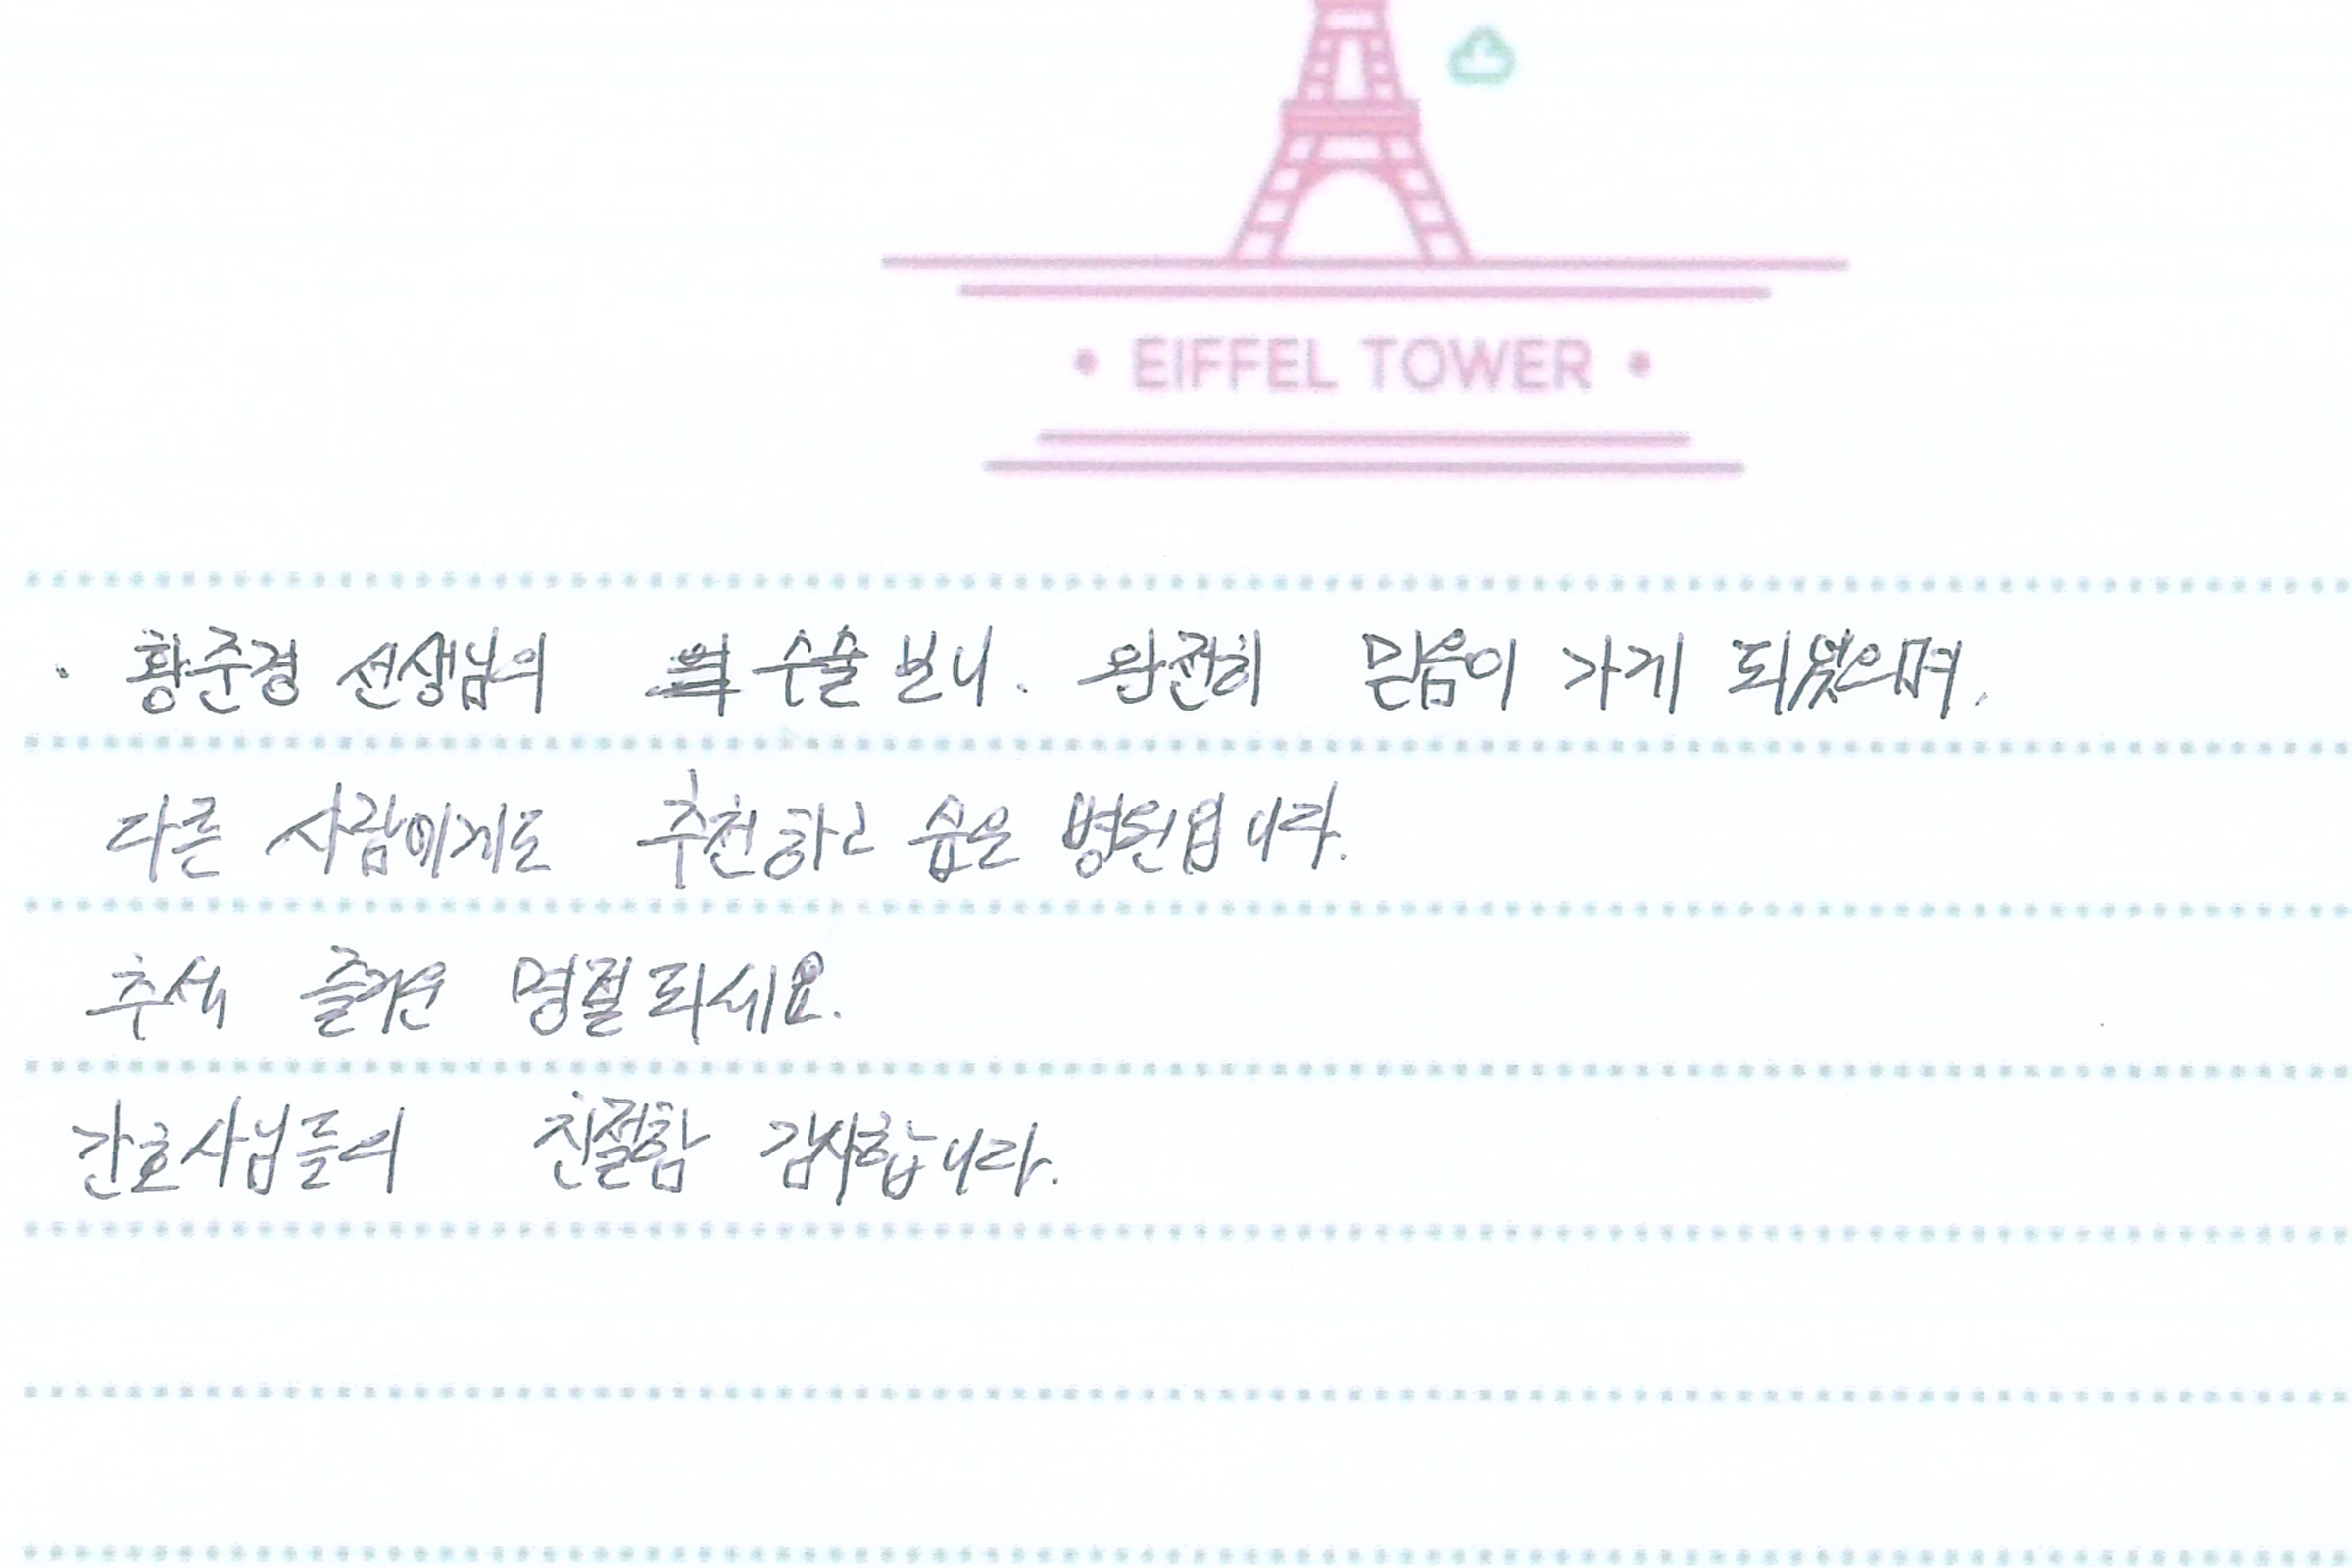 • EIFFEL TOWER •
. 황준경 선생님의 수술 보니. 완전히 믿음이 가게 되었으며.
다른 사람에게도 추천하고 싶은 병원입니다.
추석 즐거운 명절 되세요.
간호사님들의 친절함 감사합니다.